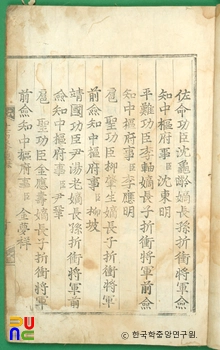 佐命功臣沈龜齡嫡長孫折衝將軍僉
知中樞府事臣沈東明
平難功臣李軸嫡長子折衝將軍前僉
知中樞府事臣李應明
扈聖功臣柳肇生嫡長子折衝將軍
前僉知中樞府事臣柳坡
靖國功臣尹湯老嫡長孫折衝將軍前
僉知中樞府事臣尹
扈聖功臣金應壽嫡長子折衝將軍
前僉知中樞府事臣金夢祥
PUNC
한국학중앙연구원